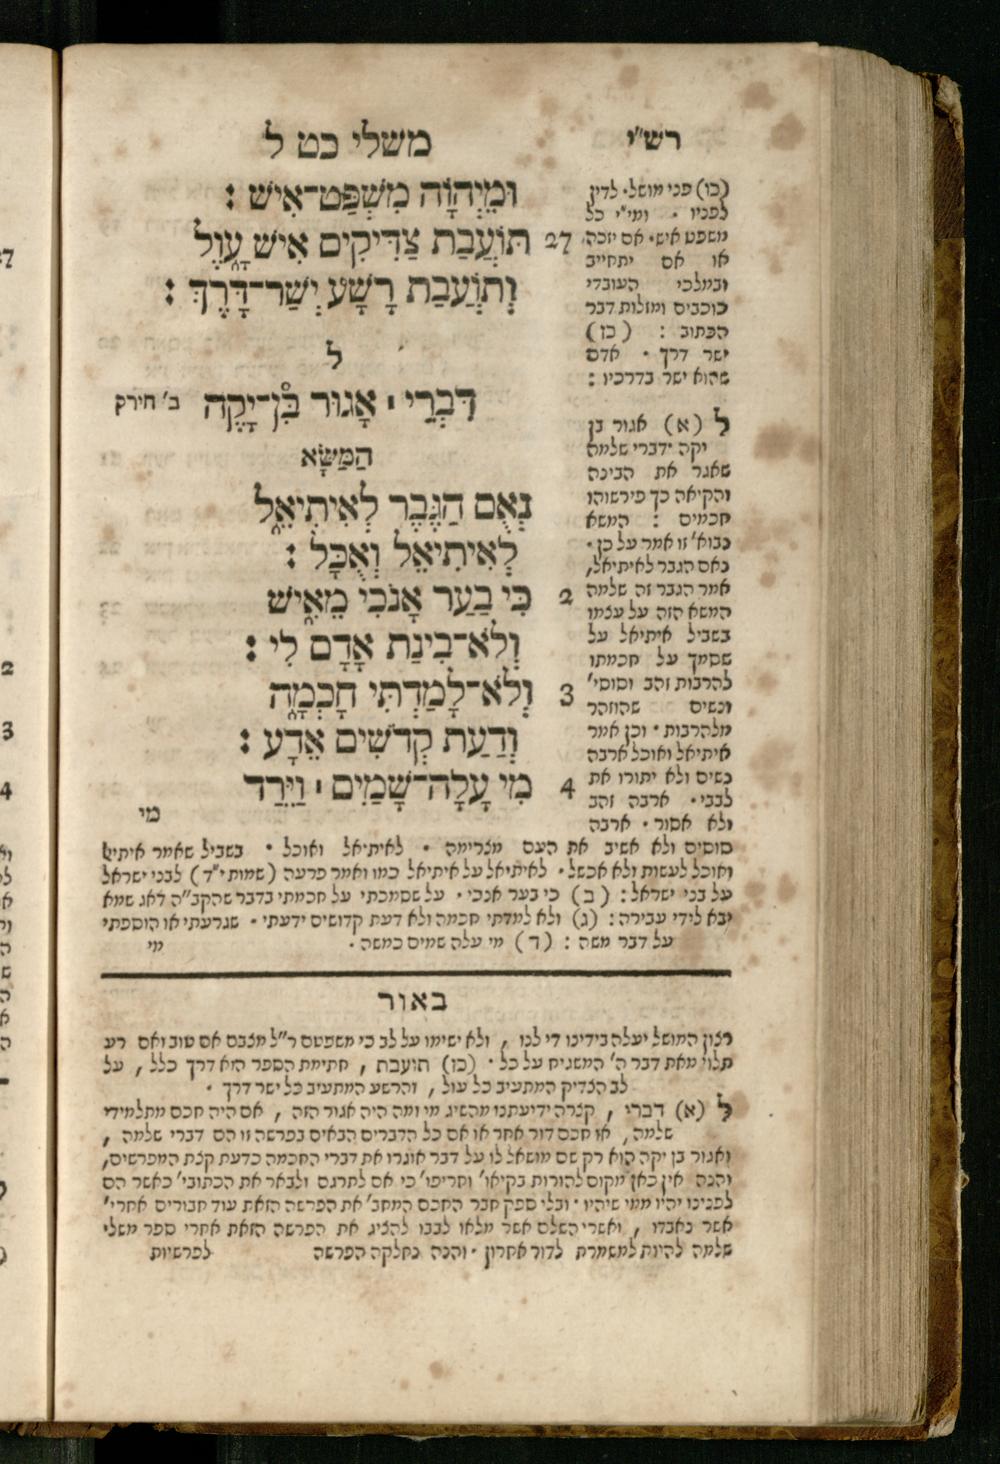 משלי כט ל
וּמֵיְהוָֹה מִשְׁפַּט־אִישׁ :
27 תּוֹעֲבַת צַדִּיקִים אִישׁ עָוֶל
וְתוֹעֲבַת רָשָׁע יְשַׁר־דָּרֶךְ :
ל
דִּבְרֵי ׀ אָגוּר בִּן־יָקֶה ב' חירק
הַמַּשָּׂא
נְאֻם הַגֶּבֶר לְאִיתִיאֵל
לְאִיתִיאֵל וְאֻכָל :
2 כִּי בַעַר אָנֹכִי מֵאִישׁ
וְלֹא־בִינַת אָדָם לִי :
3 וְלֹא־לָמַדְתִּי חָכְמָה
וְדַעַת קְדֹשִׁים אֵדָע :
4 מִי עָלָה־שָׁמַיִם ׀ וַיֵּרַד
מי
רש"י
(כו) פני מושל · לדין
לפניו · ומי"י כל
משפט איש · אם יזכה
או אם יתחייב
ובמלכי העובדי
כוכבים ומזלות דבר
הכתוב : (כז)
ישר דרך · אדם
שהוא ישר בדרכיו :
ל (א) אגור בן
יקה · דברי שלמה
שאגר את הבינה
והקיאה כך פירשוהו
חכמים : המשא
נבוא' זו אמר על כן ·
נאם הגבר לאיתיאל,
אמר הגבר זה שלמה
המשא הזה על עצמו
בשביל איתיאל על
שסמך על חכמתו
להרבות זהב וסוסי'
ונשים שהוזהר
מלהרבות · וכן אמר
איתיאל ואוכל ארבה
נשים ולא יתורו את
לבבי · ארבה זהב
ולא אסור · ארבה
סוסים ולא אשיב את העם מצרימה · לאיתיאל ואוכל · בשביל שאמר איתי
ואוכל לעשות ולא אכשל · לאיתיאל על איתיאל כמו ואמר פרעה (שמות י"ד) לבני ישראל
על בני ישראל : (ב) כי בער אנכי · על שסמכתי על חכמתי בדבר שהקב"ה דאג שמא
יבא לידי עבירה : (ג) ולא למדתי חכמה ולא דעת קדושים ידעתי · שגרעתי או הוספתי
על דבר משה : (ד) מי עלה שמים כמשה · מי
באור
רצון המושל יעלה בידינו די לנו , ולא ישימו על לב כי משפטם ר"ל מצבם אם טוב ואם רע
תלוי מאת דבר ה' המשגיח על כל · (כז) תועבת , חתימת הספר הוא דרך כלל , על
לב הצדיק המתעיב כל עול , והרשע המתעיב כל ישר דרך ·
ל (א) דברי , קצרה ידיעתנו מהשיג מי ומה היה אגור הזה , אם היה חכם מתלמידי
שלמה , או חכם דור אחר או אם כל הדברים הבאים בפרשה זו הם דברי שלמה ,
ואגור בן יקה הוא רק שם מושאל לו על דבר אוגרו את דברי החכמה כדעת קצת המפרשים,
והנה אין כאן מקום להורות בקיאו' וחריפו' כי אם לתרגם ולבאר את הכתובי' כאשר הם
לפנינו יהיו ממי שיהיו · ובלי ספק חבר החכם המחב' את הפרשה הזאת עוד חבורים אחרי'
אשר נאבדו , ואשרי השלם אשר מלאו לבבו להציג את הפרשה הזאת אחרי ספר משלי
שלמה להיות למשמרת לדור אחרון · והנה נחלקה הפרשה לפרשיות